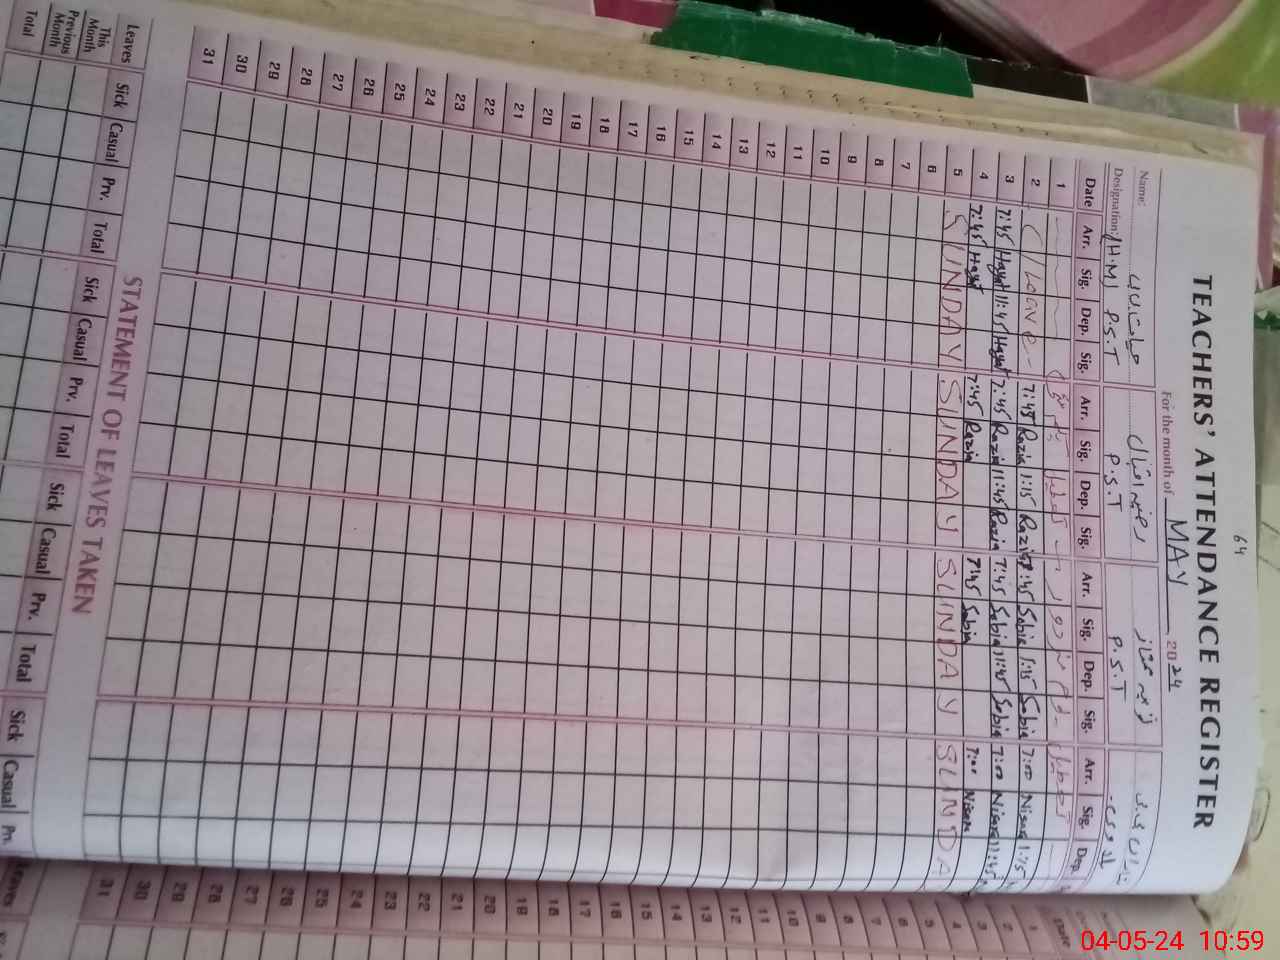 64
TEACHERS' ATTENDANCE REGISTER
For the month of MAY 2024
Name: رضیہ اقبال
Designation: (H.M) P.S.T P.S.T P.S.T
Date Arr. Sig. Dep. Sig. Arr. Sig. Dep. Sig. Arr. Sig. Dep. Sig. Arr. Sig. Dep.
1
2 C/Leave 7:45 Razia 1:15 Razia 7:45 Sobia 1:15 Sobia 7:00 Nisar 1:15
3 7:45 Hayat 11:45 Hayat 7:45 Razia 11:45 Razia 7:45 Sobia 11:45 Sobia 7:00 Nisar 11:45
4 7:45 Hayat 7:45 Razia 7:45 Sobia 7:00 Nisar
5 SUNDAY SUNDAY SUNDAY SUNDA
6
7
8
9
10
11
12
13
14
15
16
17
18
19
20
21
22
23
24
25
26
27
28
29
30
31
STATEMENT OF LEAVES TAKEN
Leaves Sick Casual Prv. Total Sick Casual Prv. Total Sick Casual Prv. Total Sick Casual Prv.
This Month
Previous Month
Total
04-05-24 10:59